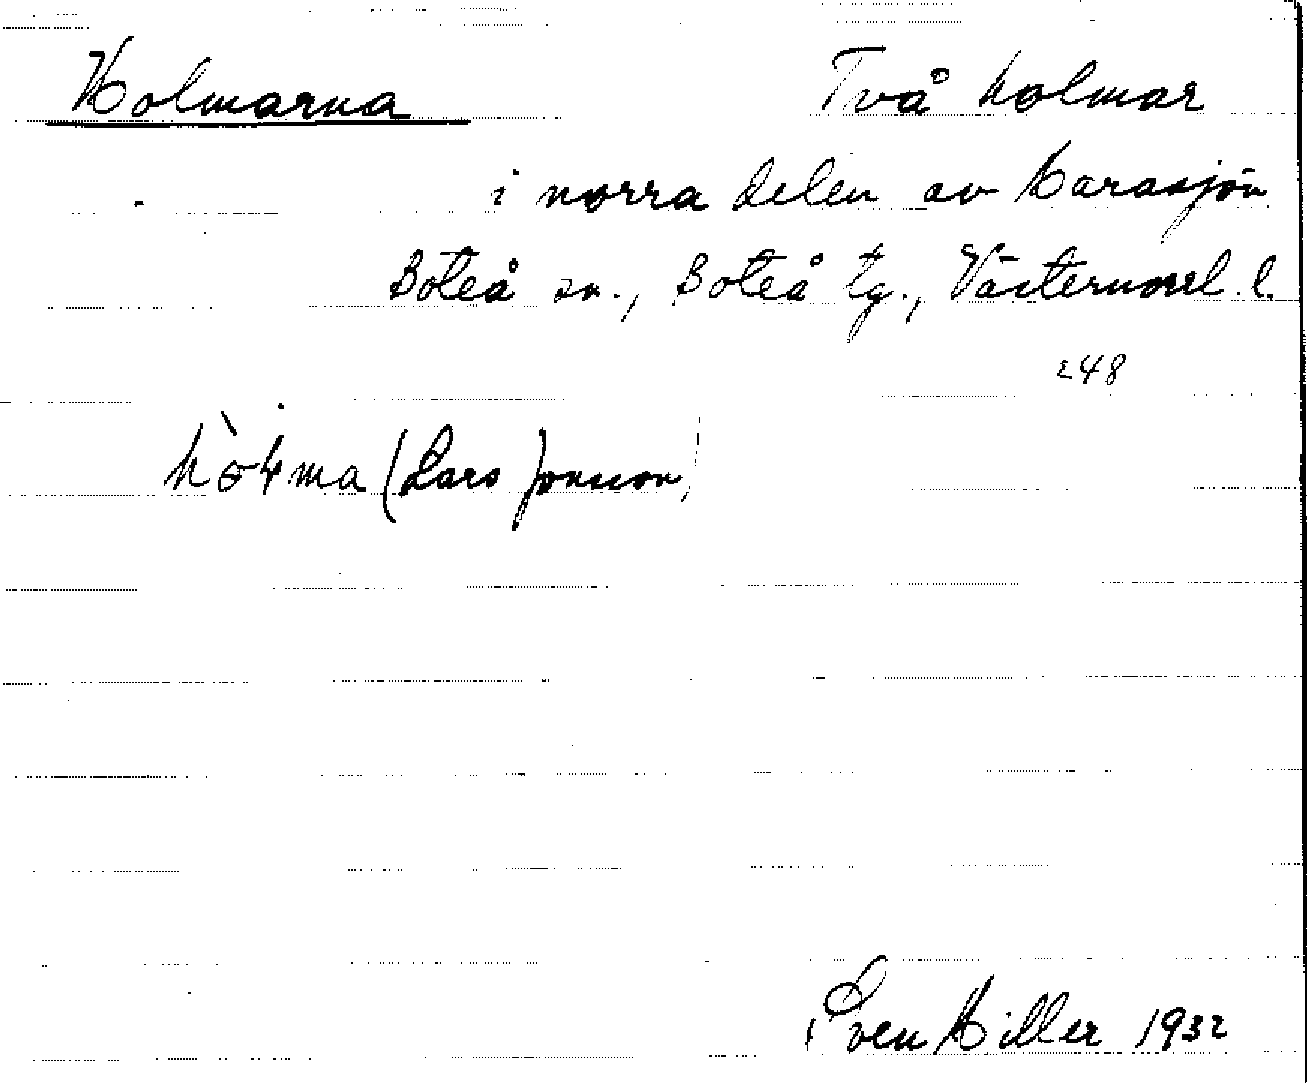 Holmarna Två holmar
i norra delen av Harasjön
Boteå sn., Boteå tg., Västernorrl. l.
248
hòłma (Lars Jonsson)
Sven Hiller 1932